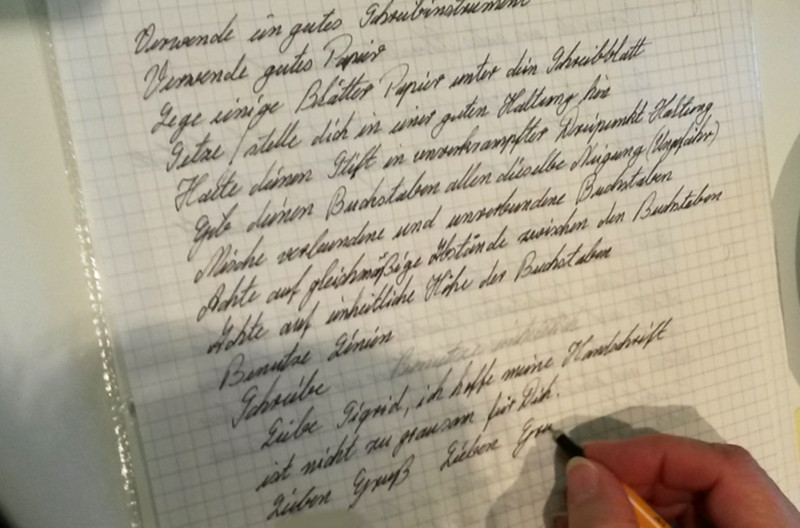 Verwende ein gutes Schreibinstrument
Verwende gutes Papier
Lege einige Blätter Papier unter dein Schreibblatt
Setze / stelle dich in einer guten Haltung hin
Halte deinen Stift in unverkrampfter Dreipunkt-Haltung
Gib deinen Buchstaben allen dieselbe Neigung (Ungefähr)
Mische verbundene und unverbundene Buchstaben
Achte auf gleichmäßige Abstände zwischen den Buchstaben
Achte auf einheitliche Höhe der Buchstaben
Benutze Linien
Schreibe
Liebe Sigrid, ich hoffe meine Handschrift
ist nicht zu grausam für Dich.
Lieben Gruß Lieben Gru